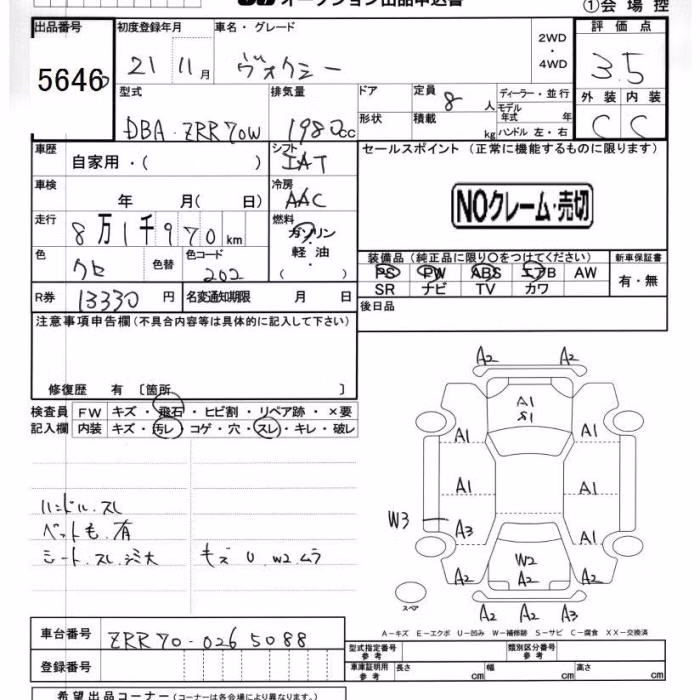 オークション出品申込書
①会場控
出品番号 初度登録年月 車名・グレード 評価点
5646 21 11月 ヴォクシー 2WD・4WD 3.5
型式 排気量 ドア 定員 8人 ディーラー・並行 外装 内装
形状 積載 kg モデル年式 年 ハンドル 左・右
DBA・ZRR70W 1980cc C C
車歴 自家用・( ) シフト IAT セールスポイント (正常に機能するものに限ります)
車検 年 月( 日) 冷房 AAC NOクレーム・売切
走行 8万1千970km 燃料 ガソリン・軽油・( )
色 クロ 色替 色コード 202
装備品 (純正品に限り○をつけてください) 新車保証書
PS PW ABS エアB AW 有・無
SR ナビ TV カワ
R券 13330円 名変通知期限 月 日 後日品
注意事項申告欄 (不具合内容等は具体的に記入して下さい)
修復歴 有 [箇所 ]
検査員 FW キズ・飛石・ヒビ割・リペア跡・×要
記入欄 内装 キズ・汚レ・コゲ・穴・スレ・キレ・破レ
ハンドル.スレ
ペット毛.有
シート.スレ.シミ大 キズ U W2.ムラ
A2 A2
A1
S1
A1 A1
A1 A1
W3 A3 A1
W2
A2 A2 A2
スペア
A2 A2 A3
A-キズ E-エクボ U-凹み W-補修跡 S-サビ C-腐食 XX-交換済
車台番号 ZRR70-0265088
型式指定番号 参考 類別区分番号 参考
登録番号 車庫証明用 参考 長さ cm 幅 cm 高さ cm
希望出品コーナー (コーナーは各会場により異なります。)